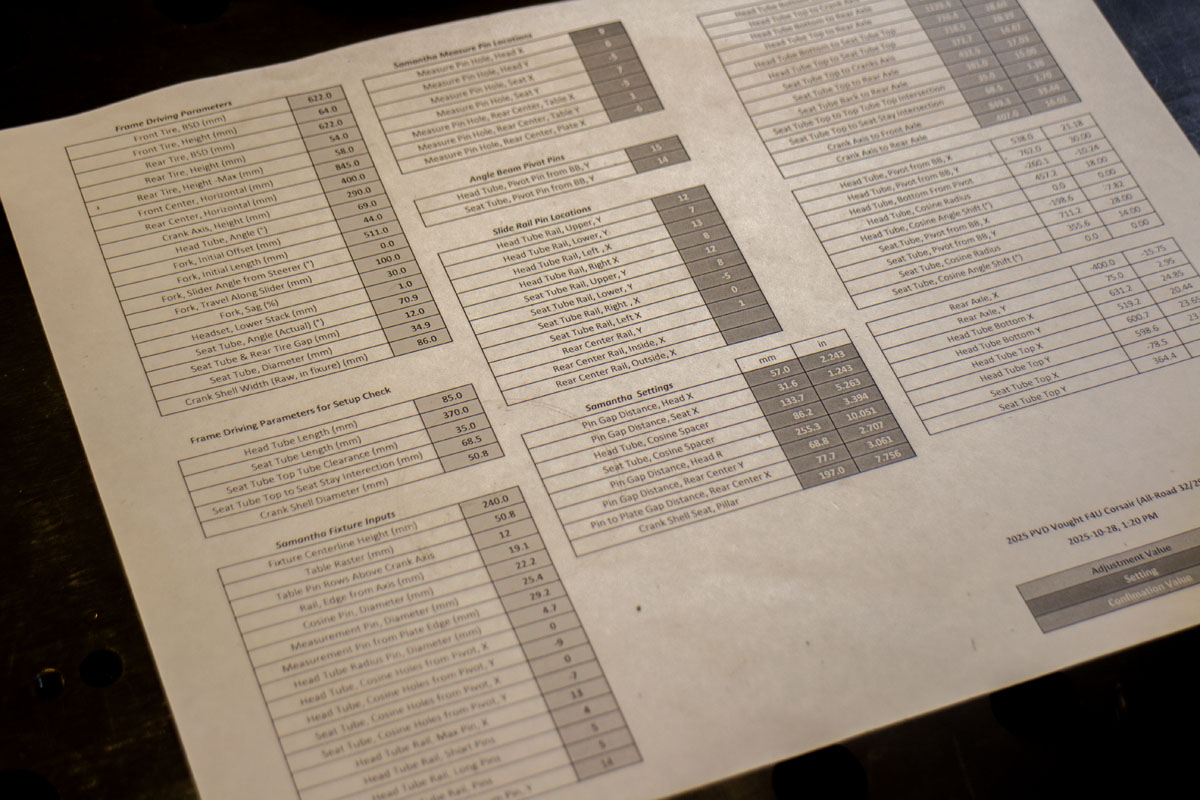 Frame Driving Parameters
Front Tire, BSD (mm) 622.0
Front Tire, Height (mm) 64.0
Rear Tire, BSD (mm) 622.0
Rear Tire, Height (mm) 54.0
Rear Tire, Height -Max (mm) 58.0
Front Center, Horizontal (mm) 845.0
Rear Center, Horizontal (mm) 400.0
Crank Axis, Height (mm) 290.0
Head Tube, Angle (°) 69.0
Fork, Initial Offset (mm) 44.0
Fork, Initial Length (mm) 511.0
Fork, Slider Angle from Steerer (°) 0.0
Fork, Travel Along Slider (mm) 100.0
Fork, Sag (%) 30.0
Headset, Lower Stack (mm) 1.0
Seat Tube, Angle (Actual) (°) 70.9
Seat Tube & Rear Tire Gap (mm) 12.0
Seat Tube, Diameter (mm) 34.9
Crank Shell Width (Raw, in fixture) (mm) 86.0
Frame Driving Parameters for Setup Check
Head Tube Length (mm) 85.0
Seat Tube Length (mm) 370.0
Seat Tube Top Tube Clearance (mm) 35.0
Seat Tube Top to Seat Stay Interection (mm) 68.5
Crank Shell Diameter (mm) 50.8
Samantha Fixture Inputs
Fixture Centerline Height (mm) 240.0
Table Raster (mm) 50.8
Table Pin Rows Above Crank Axis 12
Rail, Edge from Axis (mm) 19.1
Cosine Pin, Diameter (mm) 22.2
Measurement Pin, Diameter (mm) 25.4
Measurement Pin from Plate Edge (mm) 29.2
Head Tube Radius Pin, Diameter (mm) 4.7
Head Tube, Cosine Holes from Pivot, X 0
Head Tube, Cosine Holes from Pivot, Y -9
Seat Tube, Cosine Holes from Pivot, X 0
Seat Tube, Cosine Holes from Pivot, Y -7
Head Tube Rail, Max Pin, X 13
Head Tube Rail, Short Pins 4
Head Tube Rail, Long Pins 5
Tube Rail, Pins 5
Pin, 14
Samantha Measure Pin Locations
Measure Pin Hole, Head X 9
Measure Pin Hole, Head Y
Measure Pin Hole, Seat X
Measure Pin Hole, Seat Y 7
Measure Pin Hole, Rear Center, Table X
Measure Pin Hole, Rear Center, Table Y
Measure Pin Hole, Rear Center, Plate X
Angle Beam Pivot Pins
Head Tube, Pivot Pin from BB, Y 15
Seat Tube, Pivot Pin from BB, Y 14
Slide Rail Pin Locations
Head Tube Rail, Upper, Y 12
Head Tube Rail, Lower, Y 7
Head Tube Rail, Left , X 13
Head Tube Rail, Right X 8
Seat Tube Rail, Upper, Y 12
Seat Tube Rail, Lower, Y 8
Seat Tube Rail, Right , X -5
Seat Tube Rail, Left X 0
Rear Center Rail, Y 1
Rear Center Rail, Inside, X
Rear Center Rail, Outside, X
Samantha Settings mm in
Pin Gap Distance, Head X 57.0 2.243
Pin Gap Distance, Seat X 31.6 1.243
Head Tube, Cosine Spacer 133.7 5.263
Seat Tube, Cosine Spacer 86.2 3.394
Pin Gap Distance, Head R 255.3 10.051
Pin Gap Distance, Rear Center Y 68.8 2.707
Pin to Plate Gap Distance, Rear Center X 77.7 3.061
Crank Shell Seat, Pillar 197.0 7.756
Head Tube Bottom
Head Tube Top to Crank Axle
Head Tube Bottom to Rear Axle
Head Tube Top to Rear Axle
Head Tube Bottom to Seat Tube Top
Head Tube Top to Seat Tube Top
Seat Tube Top to Cranks Axis
Seat Tube Top to Rear Axle
Seat Tube Back to Rear Axle
Seat Tube Top to Top Tube Top Intersection
Seat Tube Top to Seat Stay Intersection
Crank Axis to Front Axle
Crank Axis to Rear Axle
Head Tube, Pivot from BB, X 538.0 21.18
Head Tube, Pivot from BB, Y 762.0 30.00
Head Tube, Bottom From Pivot -260.1 -10.24
Head Tube, Cosine Radius 457.2 18.00
Head Tube, Cosine Angle Shift (°) 0.0 0.00
Seat Tube, Pivot from BB, X -198.6 -7.82
Seat Tube, Pivot from BB, Y 711.2 28.00
Seat Tube, Cosine Radius 355.6 14.00
Seat Tube, Cosine Angle Shift (°) 0.0 0.00
Rear Axle, X -400.0 -15.75
Rear Axle, Y 75.0 2.95
Head Tube Bottom X 631.2 24.85
Head Tube Bottom Y 519.2 20.44
Head Tube Top X 600.7
Head Tube Top Y 598.6
Seat Tube Top X -78.5
Seat Tube Top Y 364.4
2025 PVD Vought F4U Corsair (All-Road 32/29
2025-10-28, 1:20 PM
Adjustment Value
Setting
Confimation Value